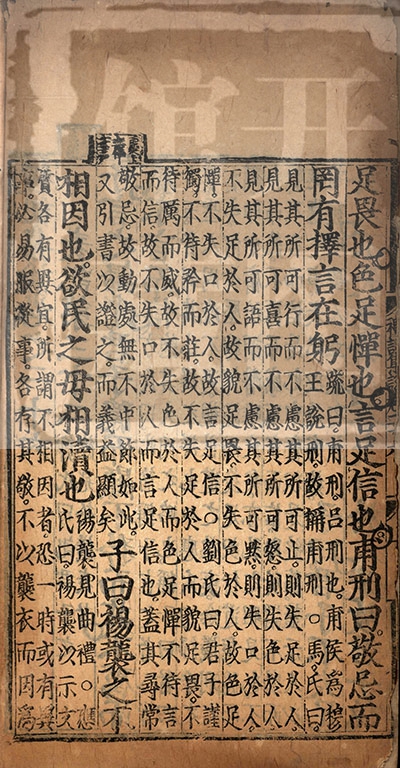 足畏也色足憚也言足信也甫刑曰敬忌而
罔有擇言在躬疏曰甫刑呂刑也甫侯為穆
王說刑故稱甫刑○馬氏曰
見其所可行而不慮其所可止則失足於人
見其所可喜而不慮其所可怒則失色於人
見其所可語而不慮其所可黙則失口於人
不失足於人故貌足畏不失色於人故色足
憚不失口於人故言足信○劉氏曰君子謹
獨不待矜而莊故不失足於人而貌足畏不
待厲而威故不失色於人而色足憚不待言
而信故不失口於人而言足信也蓋其尋常
敬忌故動處無不中節如此
又引書以證之而義益顯矣
子曰裼襲之不
相因也欲民之毋相瀆也裼襲見曲禮○應
氏曰裼襲以示文
質各有異宜所謂不相因者恐一時或有異
事必易服從事各有其敬不以襲衣而因為